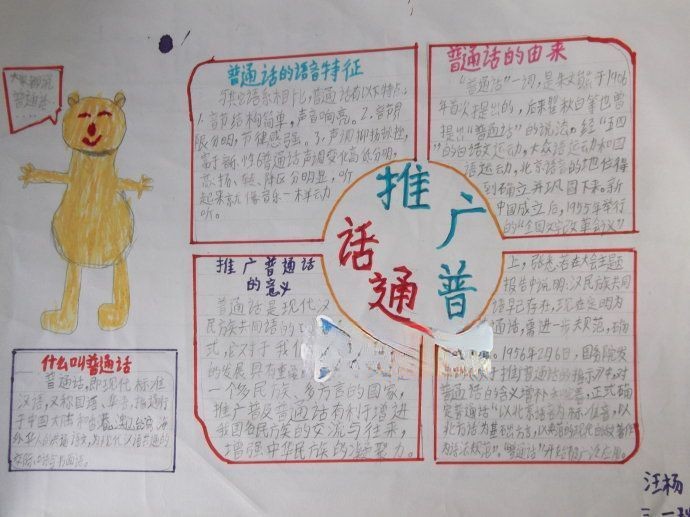 大家都说
普通话
普通话的语音特征
与其它语系相比,普通话有以下特点:
1.音节结构简单,声音响亮。2.音节
限分明,节律感强。3.声调抑扬顿挫,
普通话声调变化高低分明,
听
起来就像音乐一样动
听。
普通话的由来
“普通话”一词,是朱熊于1906
年首次提出的,后来瞿秋白等也曾
提出“普通话”的说法。经“五四”
的白话文运动,大众语运动和国
语运动,北京语言的地位得
到确立并巩固下来。新
中国成立后,1955年举行
的“全国文字改革会议”
推广普通话
推广普通话
的意义
普通话是现代汉
民族共同语的
式,它对于我
的发展具有重
一个多民族、多方言的国家,
推广普及普通话有利于增进
我国各民族的交流与往来,
增强中华民族的凝聚力。
上,张奚若在大会主题
报告中说明:汉民族共同
语早已存在,现在定名为
通话,需进一步规范,
1956年2月6日,国务院发
关于推广普通话的指示》中,对
普通话的含义,正式确
定普通话“以北京语音为标准音,以
北方话为基础方言,以典范的现代白话文著作
为语法规范”,“普通话”
什么叫普通话
普通话,即现代标准
汉语,又称国语、华语,指通行
于中国大陆和
海外华人
交际口语与书面语。
汪杨